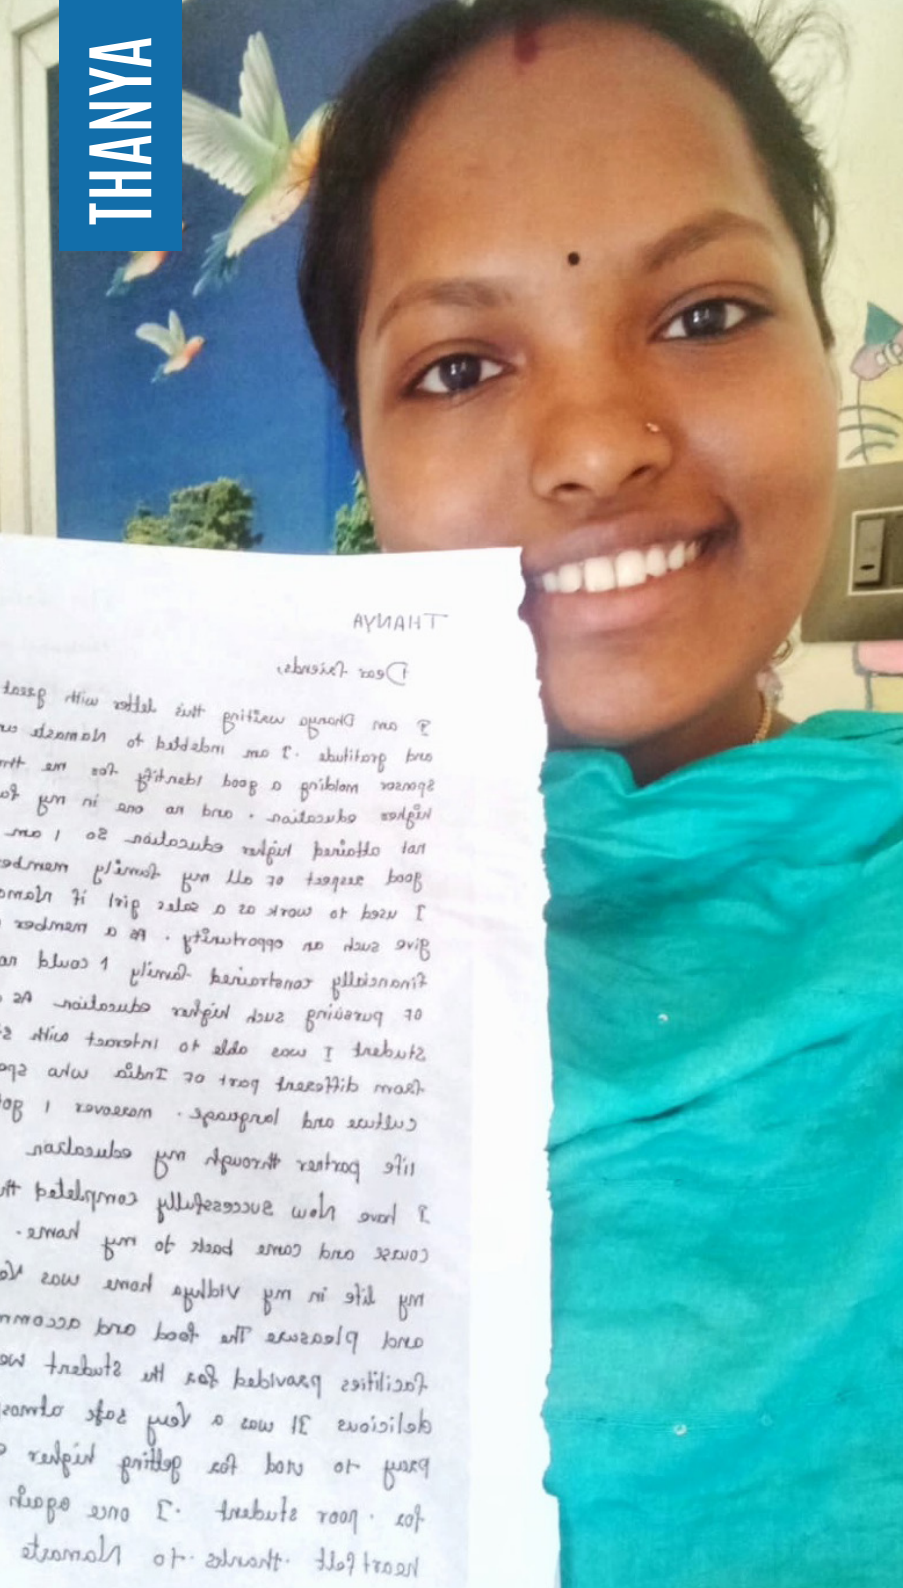 THANYA
THANYA
Dear friends,
I am Dhanya writing this letter with great
and gratitude. I am indebted to Namaste
sponsor molding a good Identify for me
higher education. and no one in my
not attained higher education So I am
good respect of all my family
I used to work as a sales girl if
give such an opportunity. As a member
financially constrained family I could
of pursuing such higher education As
student I was able to interact with
from different part of India who
culture and language. moreover I
life partner through my education
I have Now successfully completed
course and came back to my home.
my life in my vidhya home was
and pleasure The food and
facilities provided for the student
delicious It was a very safe
pray to god for getting higher
for poor student. I once again
heartfelt thanks to Namaste